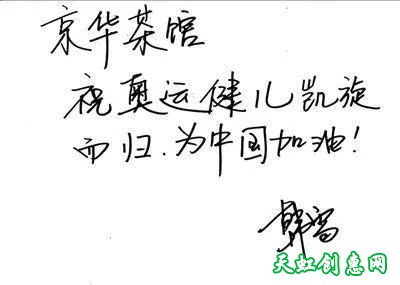 京华茶馆
祝奥运健儿凯旋
而归.为中国加油!
韩雪
天虹创意网